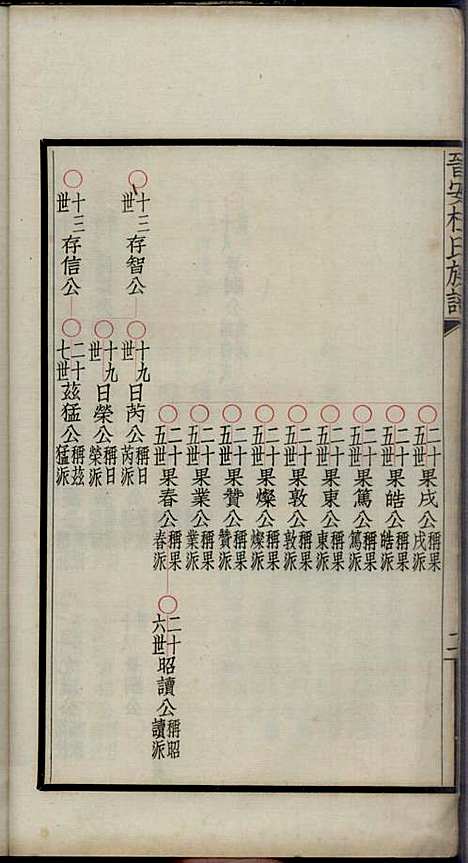 晉安杜氏族譜
二
二十五世果戌公稱果戌派
二十五世果皓公稱果皓派
二十五世果篤公稱果篤派
二十五世果東公稱果東派
二十五世果敦公稱果敦派
二十五世果燦公稱果燦派
二十五世果贊公稱果贊派
二十五世果業公稱果業派
二十五世果春公稱果春派
二十六世昭讀公稱昭讀派
十三世存智公
十九世日芮公稱日芮派
十九世日榮公稱日榮派
十三世存信公
二十七世茲猛公稱茲猛派